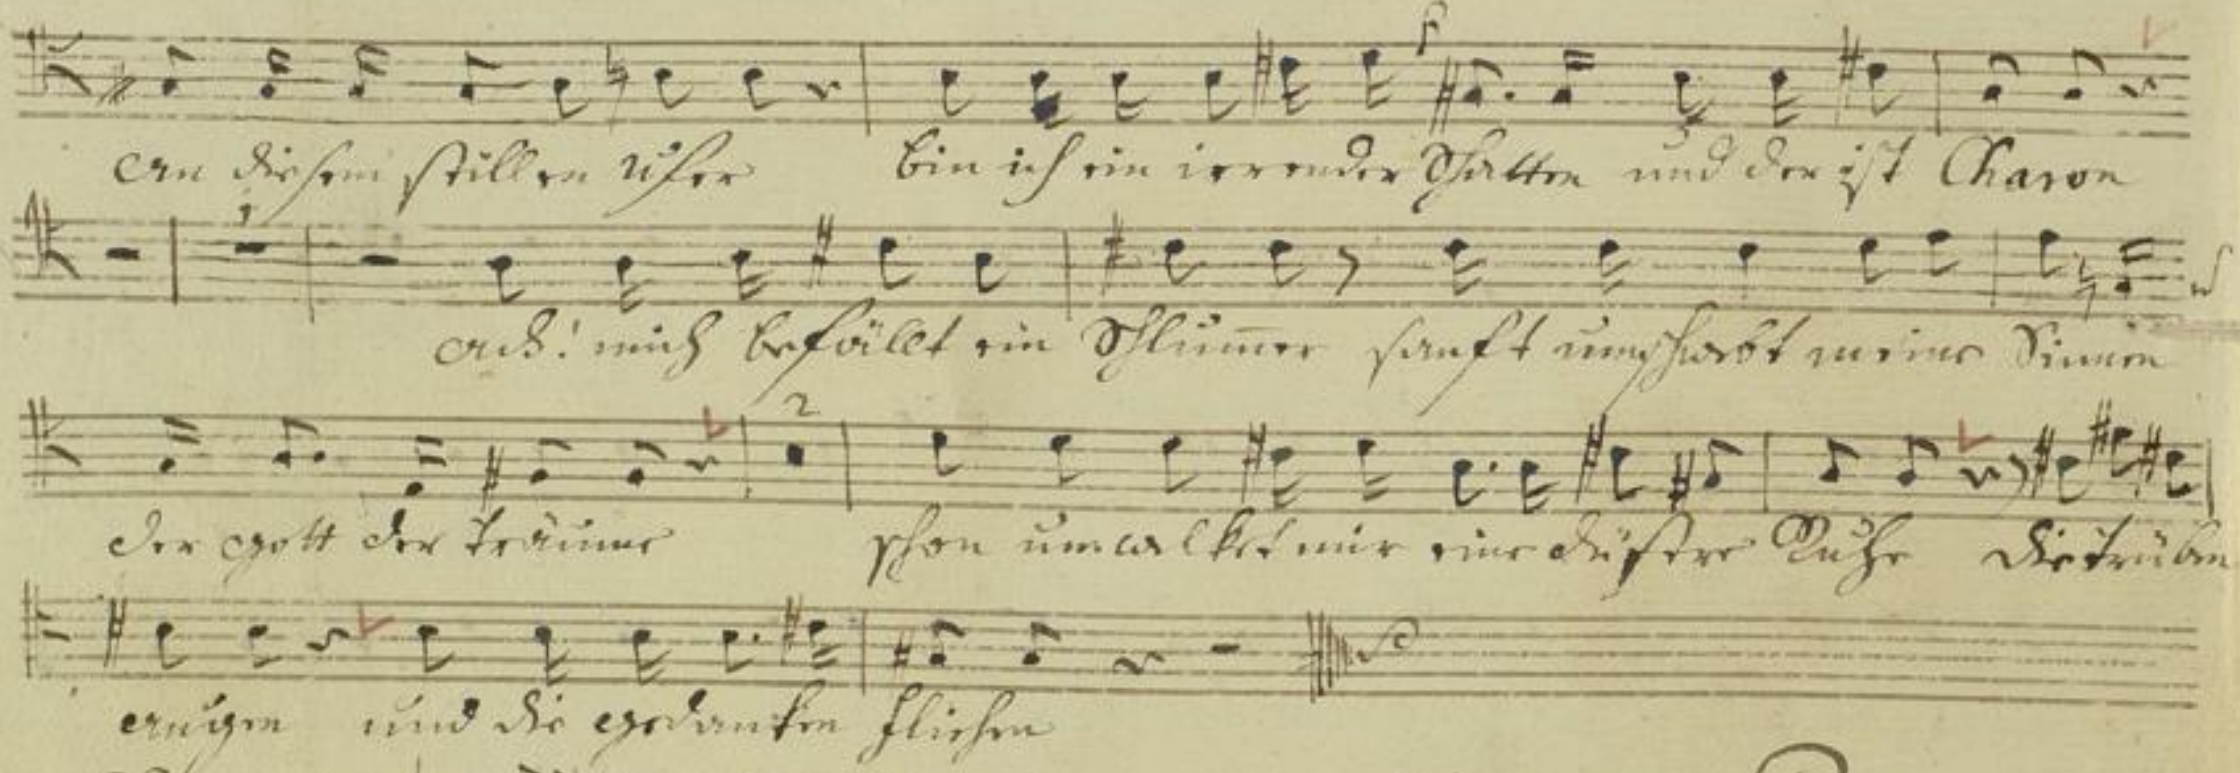 An diesem stillen Ufer bin ich ein irrender Schatten und der ist Charon
1
ach! mich befällt ein Schlummer sanft umschwebt meine Sinnen
2
der Gott der Träume schon umwolket mir eine düstere Ruhe die trüben
augen und die gedanken fliehen